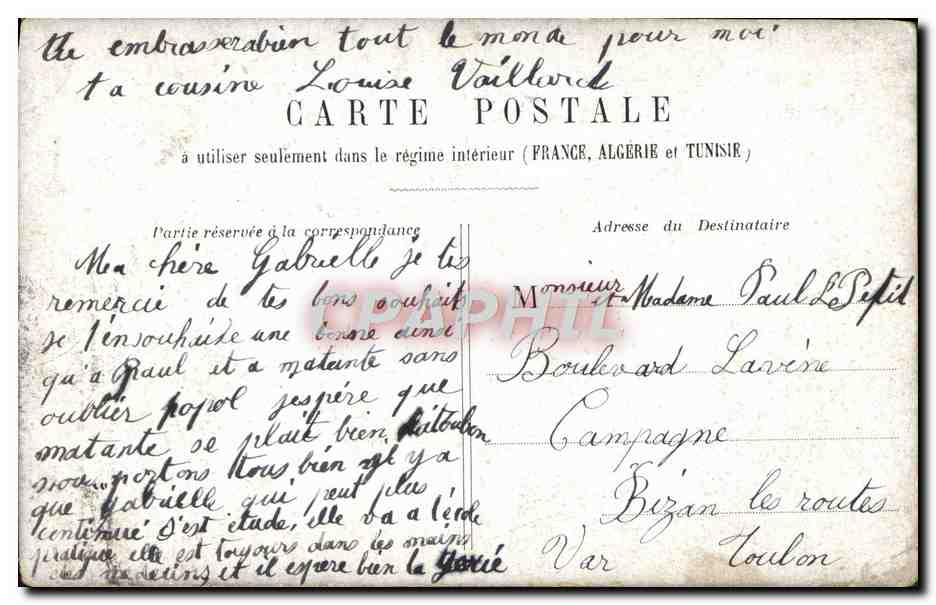 tu embrasserabien tout le monde pour moi
ta cousine Louise Vaillard
CARTE POSTALE
à utiliser seulement dans le régime intérieur (FRANCE, ALGÉRIE et TUNISIE)
Partie réservée à la correspondance
Ma chère Gabrielle je tes
remercie de tes bons souhaits
je t'ensouhaide une bonne ainsi
qu'a Paul et a matante sans
oublier popol jespére que
matante se plait bien atoulon
nous portons tous bien il y a
que Gabrielle qui peut plus
continué s'est etude, elle va a l'école
pratique elle est toujours dans les mains
des medecins et il espere bien la guerié
Adresse du Destinataire
Monsieur et Madame Paul Le Petit
Boulevard Lavène
Campagne
Bizan les routes
Var Toulon
CPAPHIL